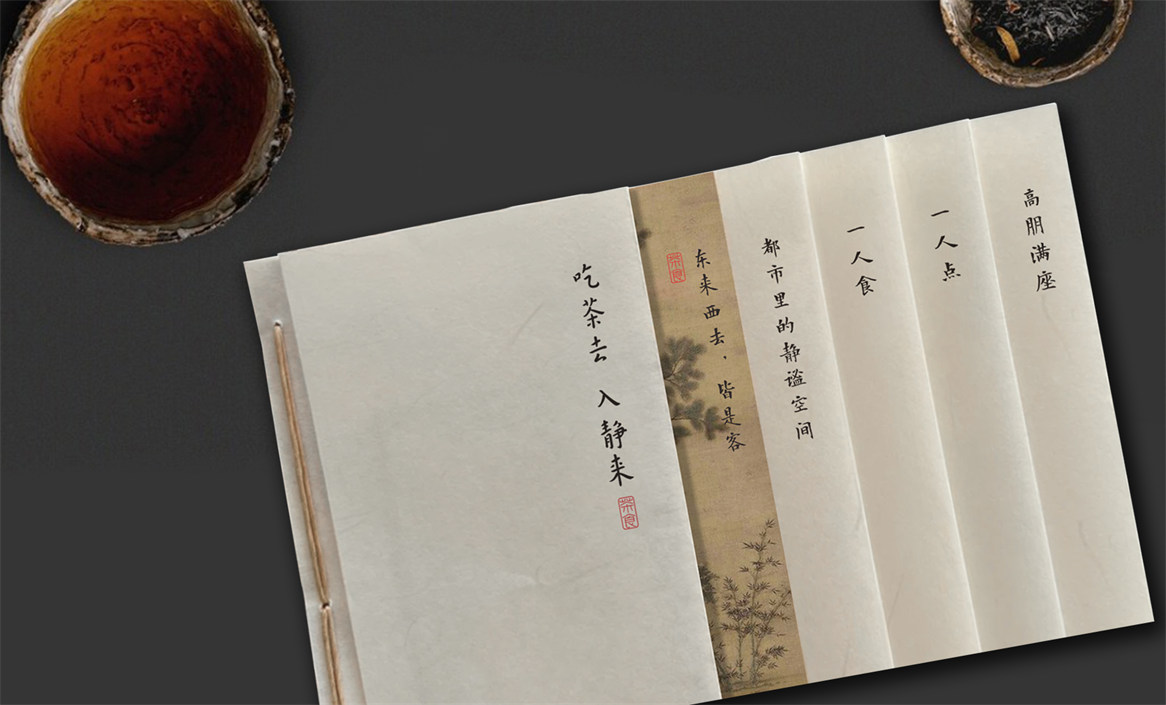 吃茶去 入静来
茶食
茶食
东来西去，皆是客
都市里的静谧空间
一人食
一人点
高朋满座